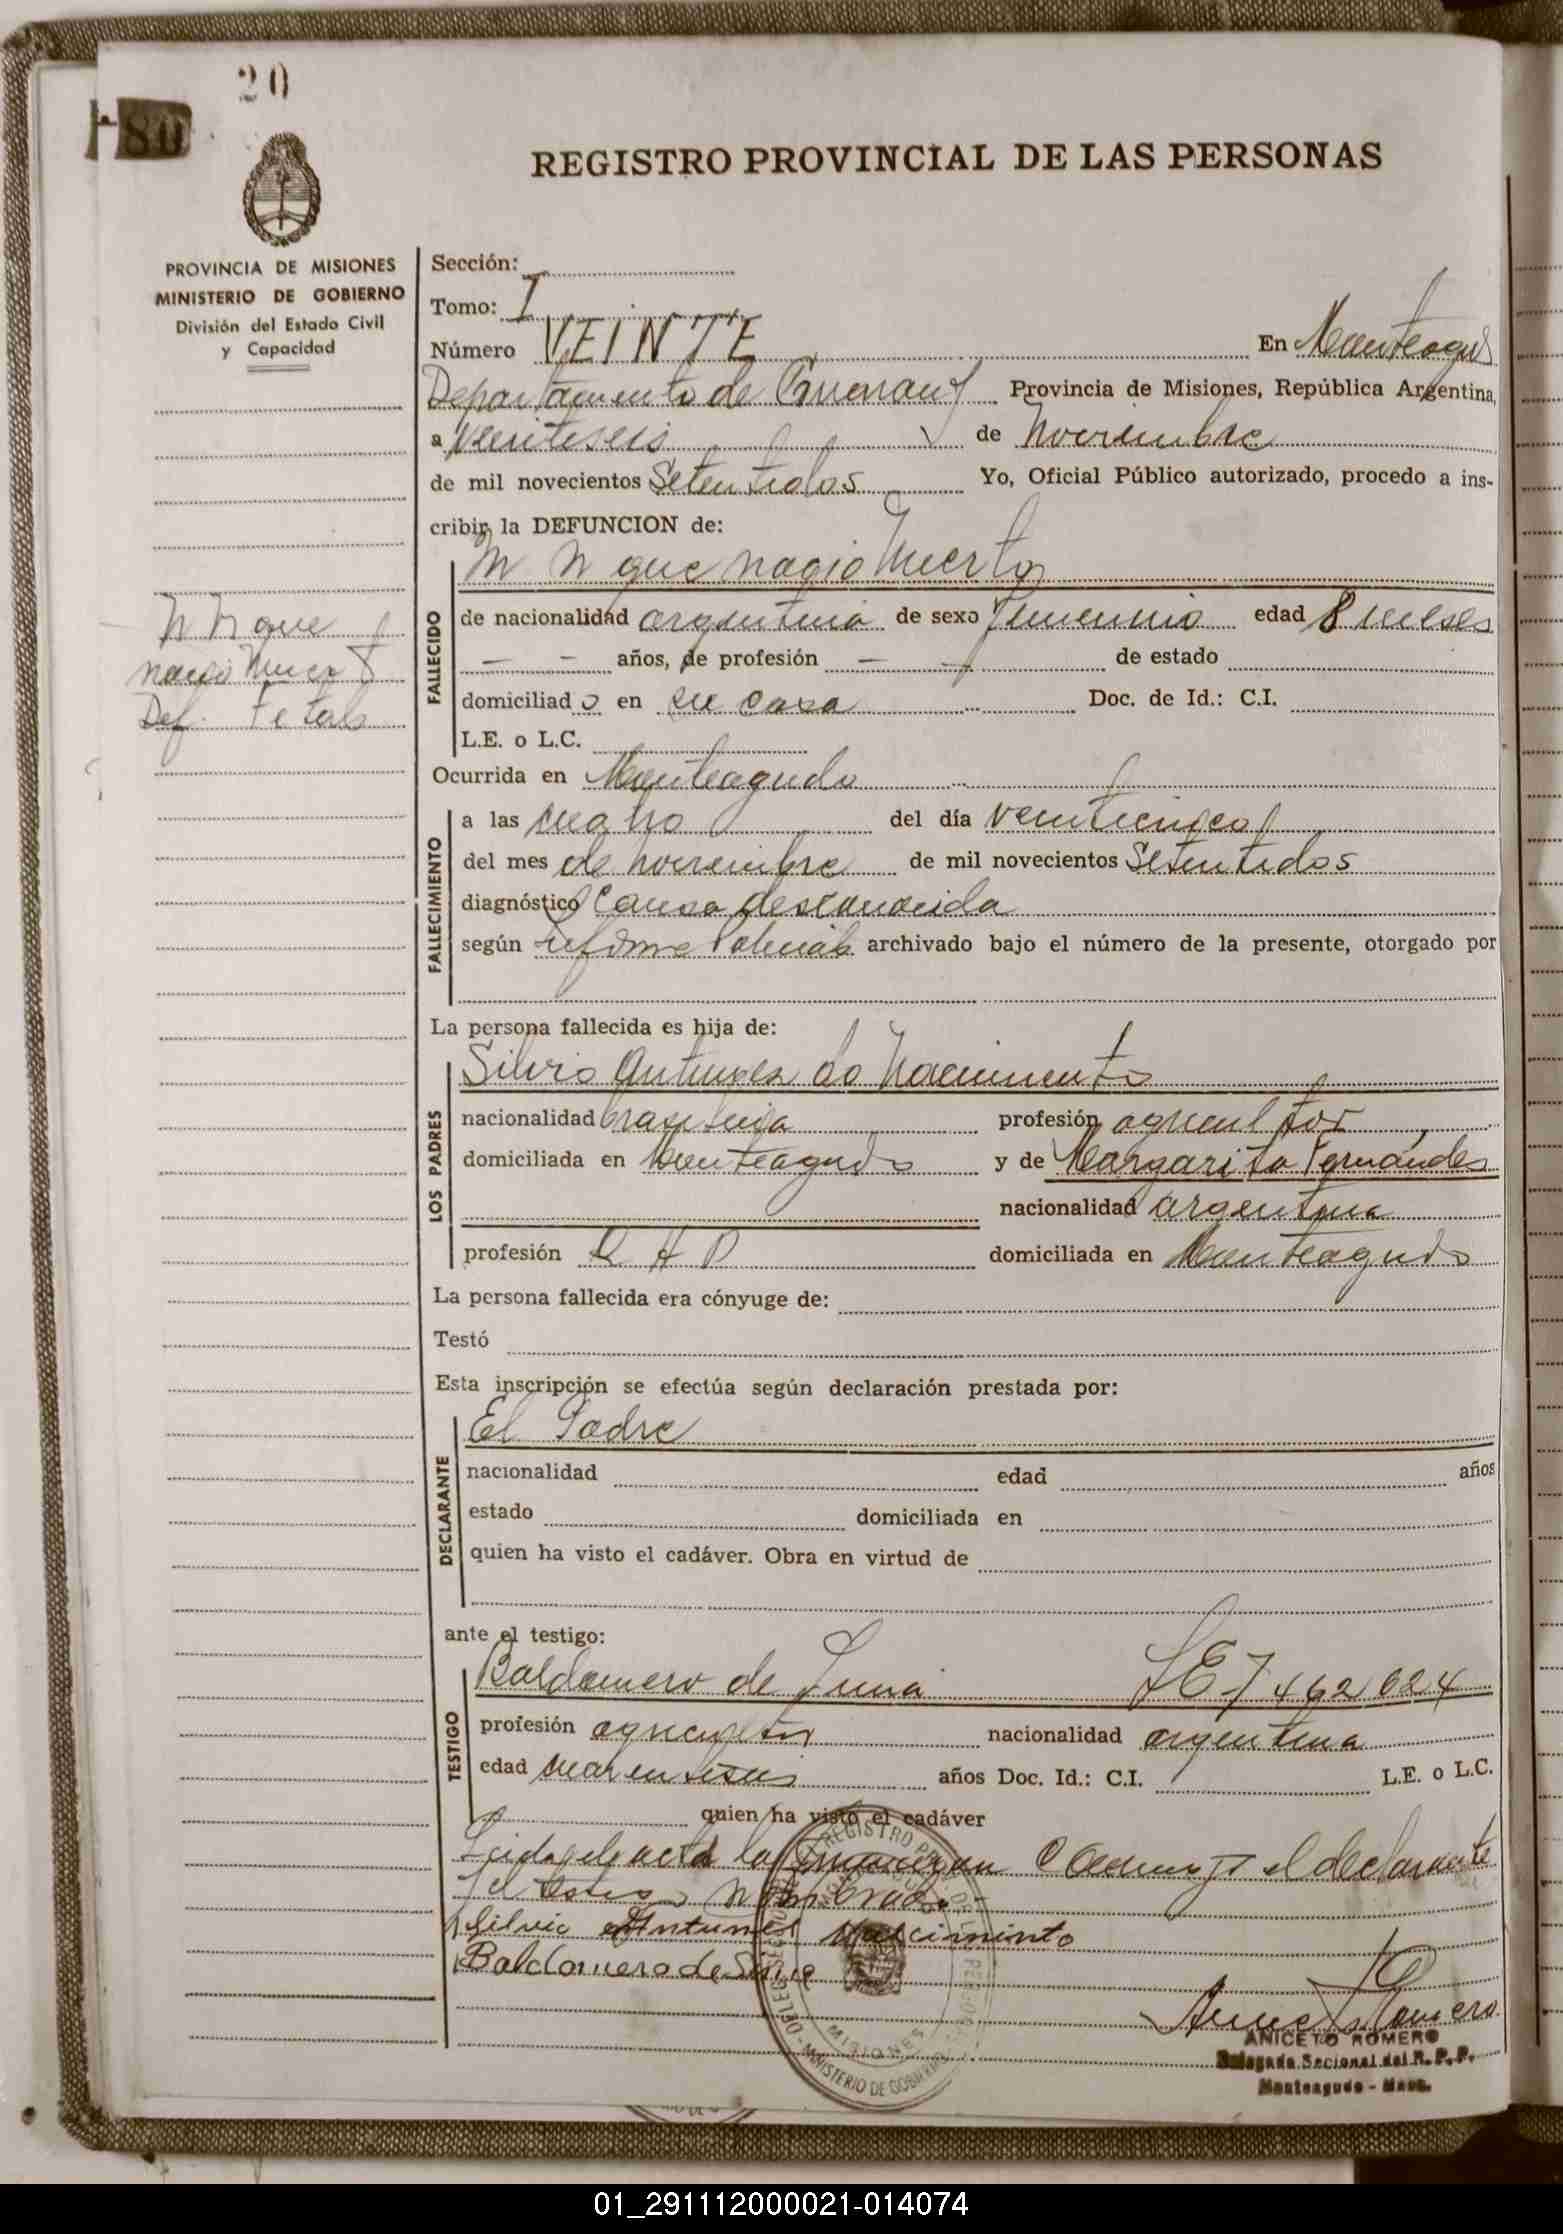 20
80
REGISTRO PROVINCIAL DE LAS PERSONAS
PROVINCIA DE MISIONES
MINISTERIO DE GOBIERNO
División del Estado Civil
y Capacidad
N N que
nacio Muert
Def. Fetal
Sección:
Tomo: I
Número VEINTE En Monteagud
Departamento de Provincia de Misiones, República Argentina,
a veintiseis de Noviembre
de mil novecientos Setentidos Yo, Oficial Público autorizado, procedo a ins-
cribir la DEFUNCION de:
N N que nacio Muerto
FALLECIDO
de nacionalidad argentina de sexo femenino edad 8 meses
— — años, de profesión — — de estado
domiciliad o en su casa Doc. de Id.: C.I.
L.E. o L.C.
Ocurrida en Monteagudo
FALLECIMIENTO
a las cuatro del día veinticinco
del mes de noviembre de mil novecientos Setentidos
diagnóstico Causa desconocida
según Informe Policial archivado bajo el número de la presente, otorgado por
La persona fallecida es hija de:
LOS PADRES
Silvio Antunes do Nacimiento
nacionalidad brasileña profesión agricultor
domiciliada en Monteagudo y de Margarita Fernández
nacionalidad argentina
profesión Q H D domiciliada en Monteagudo
La persona fallecida era cónyuge de:
Testó
Esta inscripción se efectúa según declaración prestada por:
DECLARANTE
El Padre
nacionalidad edad años
estado domiciliada en
quien ha visto el cadáver. Obra en virtud de
ante el testigo:
TESTIGO
Baldomero de LE 7 462 624
profesión agricultor nacionalidad argentina
edad cuarentiseis años Doc. Id.: C.I. L.E. o L.C.
quien ha visto el cadáver
Leida el acta la firman conmigo el declarante
y el testigo nombrado.
Silvio Antunes Nasciminto
Baldomero de
Aniceto Romero
ANICETO ROMERO
Delegado Seccional del R. P. P.
Monteagudo - Mnes.
REGISTRO PROVINCIAL DE LAS PERSONAS
MINISTERIO DE GOBIERNO
MISIONES
01_291112000021-014074